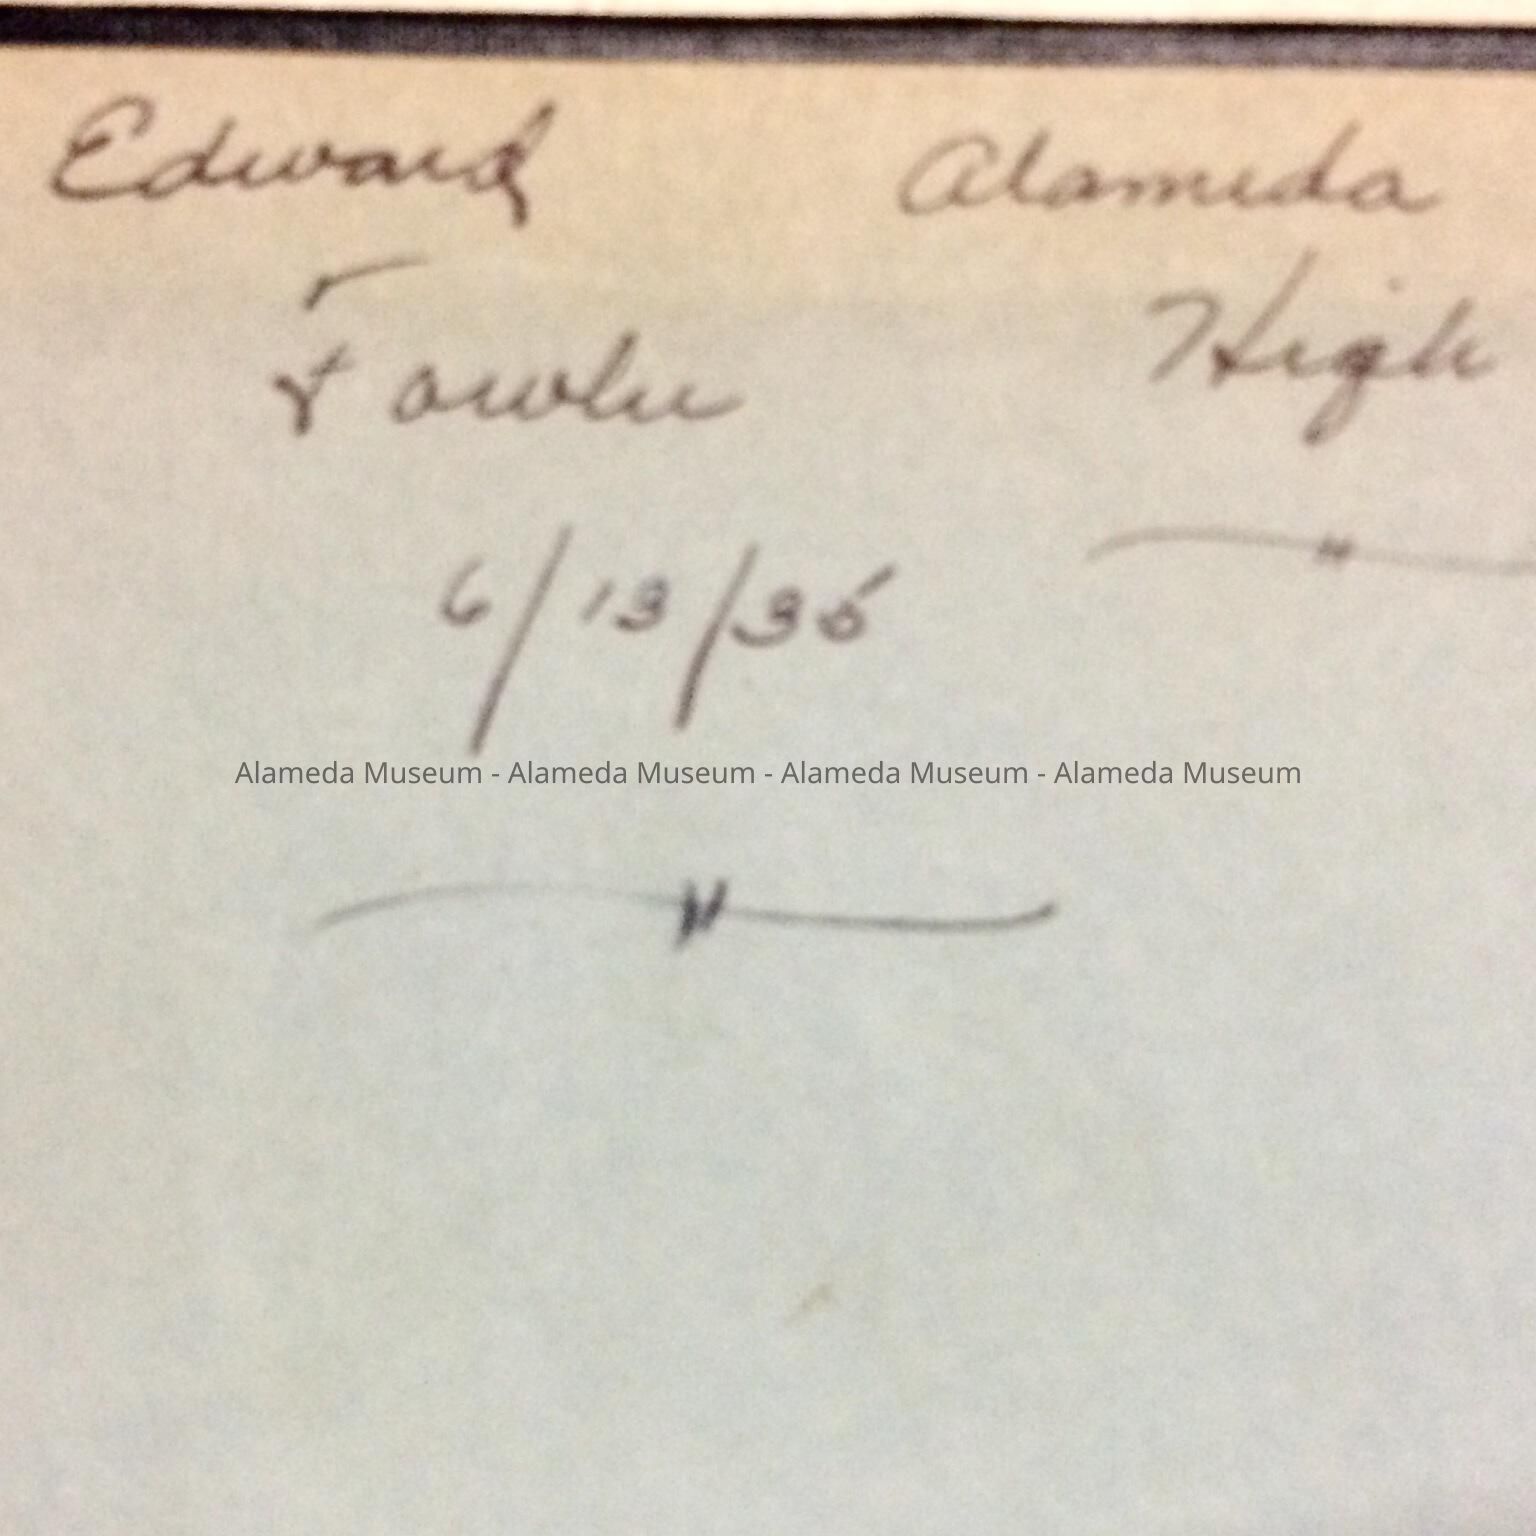 Edward Alameda
Fowler High
6/13/35
Alameda Museum - Alameda Museum - Alameda Museum - Alameda Museum